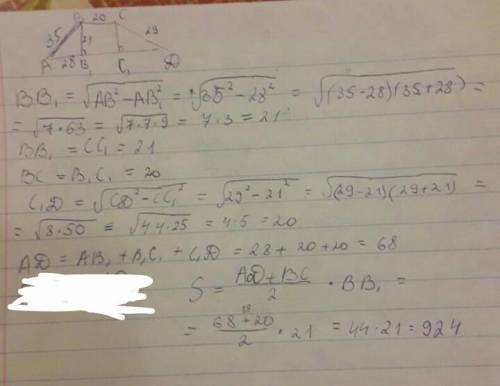 B 20 C
35 21 29
A 28 B₁ C₁ D
BB₁ = √AB² - AB₁² = √35² - 28² = √(35-28)(35+28) =
= √7·63 = √7·7·9 = 7·3 = 21
BB₁ = CC₁ = 21
BC = B₁C₁ = 20
C₁D = √CD² - CC₁² = √29² - 21² = √(29-21)(29+21) =
= √8·50 = √4·4·25 = 4·5 = 20
AD = AB₁ + B₁C₁ + C₁D = 28 + 20 + 20 = 68
S = AD + BC / 2 · BB₁ =
= 68 + 20 / 2 · 21 = 44·21 = 924